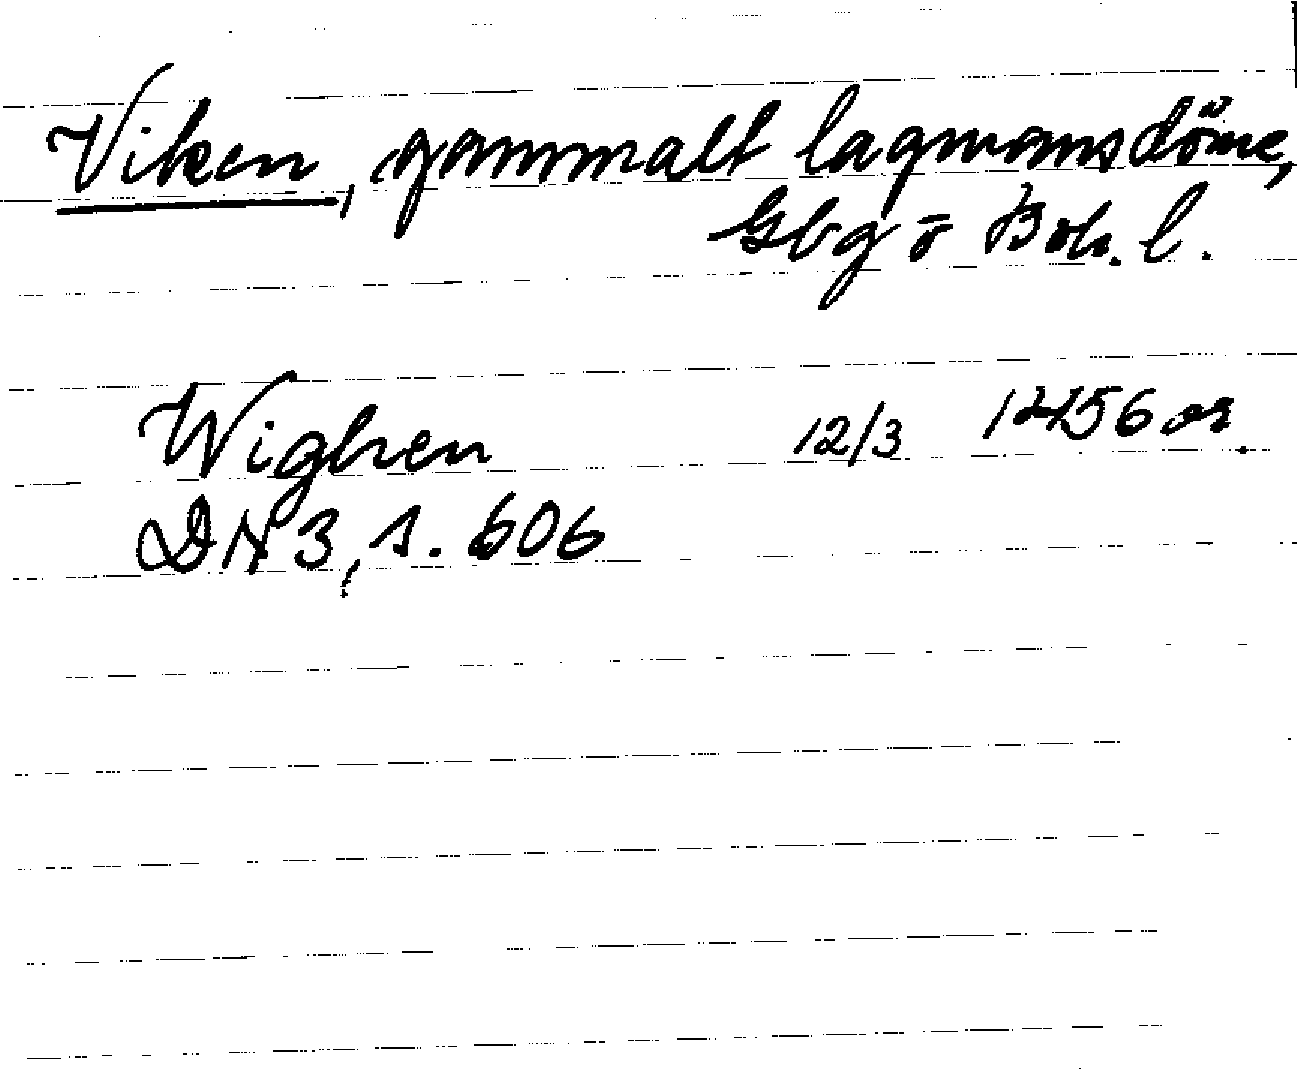 Viken, gammalt lagmansdöme,
Gbg o Boh. l.
Wighen 12/3 1456 or.
DN 3, s. 606